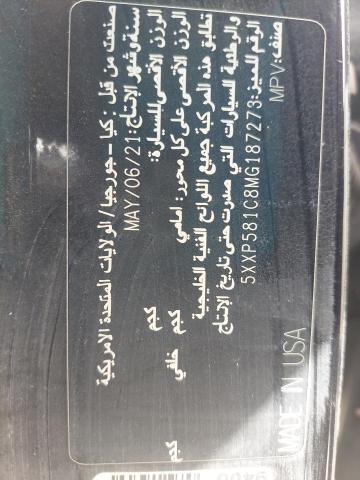 صنعت من قبل : كيا - جورجيا / الولايات المتحدة الامريكية
سنة وشهر الإنتاج: MAY/06/21
الوزن الأقصى للسيارة: كجم
الوزن الأقصى على كل محور: امامي كجم خلفي كجم
تطابق هذه المركبة جميع اللوائح الفنية الخليجية
والوطنية للسيارات التي صدرت حتى تاريخ الإنتاج
الرقم المميز: 5XXP581C8MG187273
صنف: MPV
MADE IN USA